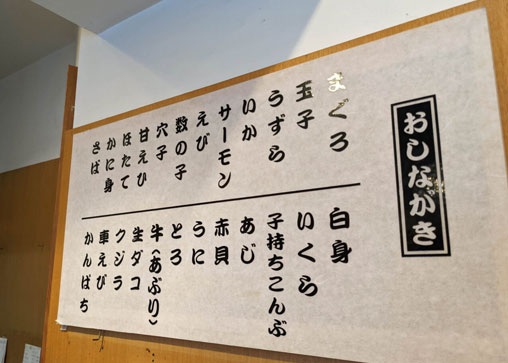 おしながき
まぐろ
玉子
うずら
いか
サーモン
えび
数の子
穴子
甘えび
ほたて
かに身
さば
白身
いくら
子持ちこんぶ
あじ
赤貝
うに
とろ
牛(あぶり)
生ダコ
クジラ
車えび
かんぱち